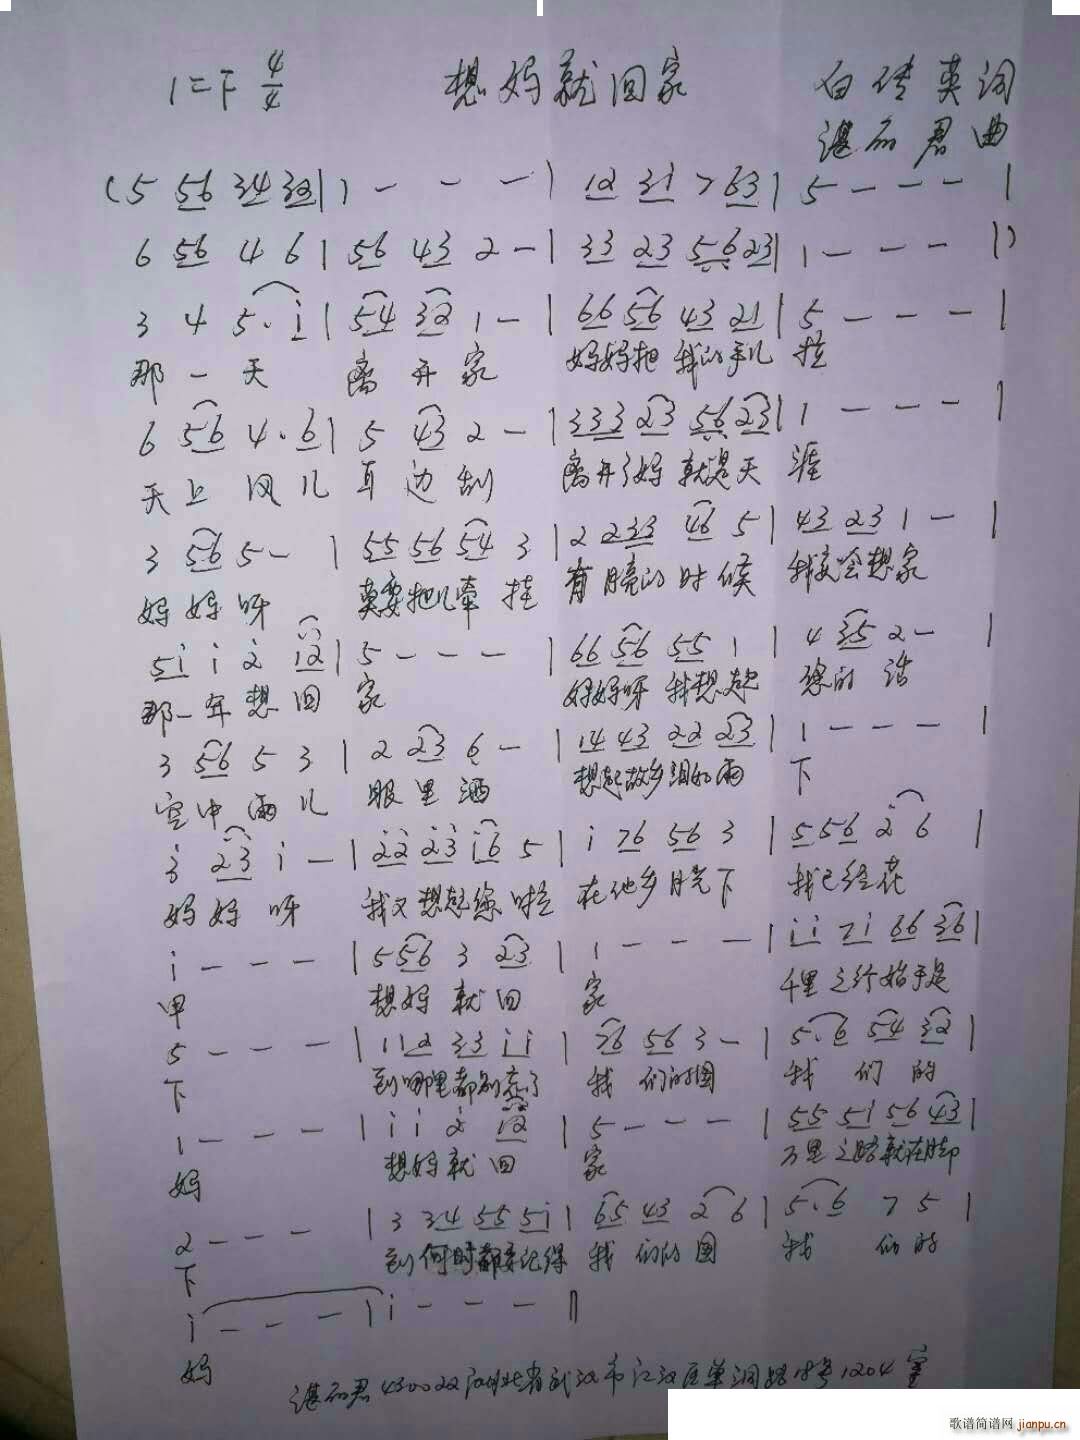 1=F 4/4 想妈就回家 白传英词
谌丽君曲
(5 56 34 32 | 1 - - - | 12 31 7 63 | 5 - - - |
6 56 4 6 | 56 43 2 - | 33 23 5623 | 1 - - - |)
3 4 5. i | 54 32 1 - | 66 56 43 21 | 5 - - - |
那一天 离开家 妈妈把我的手儿拉
6 56 4. 6 | 5 43 2 - | 333 23 5623 | 1 - - - |
天上风儿耳边刮 离开了妈就是天涯
3 56 5 - | 55 56 54 3 | 2 233 46 5 | 43 23 1 - |
妈妈呀 莫要把儿牵挂 有月亮的时候 我会想家
5i i 2 i2 | 5 - - - | 66 56 55 1 | 4 35 2 - |
那一年想回家 妈妈呀我想起您的话
3 56 5 3 | 2 23 6 - | 14 43 22 23 | 1 - - - |
空中雨儿眼里洒 想起故乡的雨下
3 23 i - | 22 23 i6 5 | i 76 56 3 | 556 2 6 |
妈妈呀 我又想起您啦 在他乡月光下 我已经花
i - - - | 5 56 3 23 | 1 - - - | ii 7i 66 36 |
甲 想妈就回家 千里之行始于足
5 - - - | 112 33 ii | 76 56 3 - | 5. 6 54 32 |
下 到哪里都别忘了 我们的国 我们的
1 - - - | i i 2 i2 | 5 - - - | 55 5i 56 43 |
妈 想妈就回家 万里之路就在脚
2 - - - | 3 34 55 5i | 65 43 2 6 | 5. 6 7 5 |
下 到何时都要记得 我们的国 我们的
i - - - | i - - - ||
妈
谌丽君430022湖北省武汉市江汉区单洞路18号1204室
歌谱简谱网 jianpu.cn